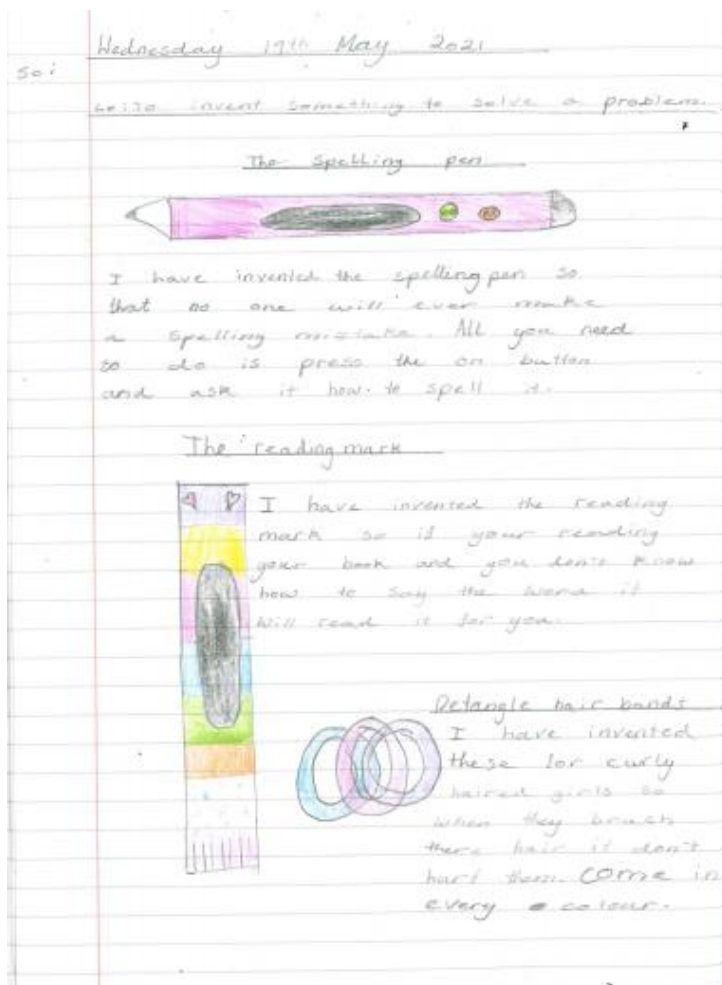 Wednesday 19th May 2021
so i
Lo: To invent something to solve a problem.
The Spelling pen
I have invented the spelling pen so
that no one will ever make
a spelling mistake. All you need
so do is press the on button
and ask it how to spell it.
The reading mark
I have invented the reading
mark so if your reading
your book and you don't know
how to say the word it
will read it for you.
Detangle hair bands
I have invented
these for curly
haired girls so
when they brush
there hair it don't
hurt them. Come in
every colour.